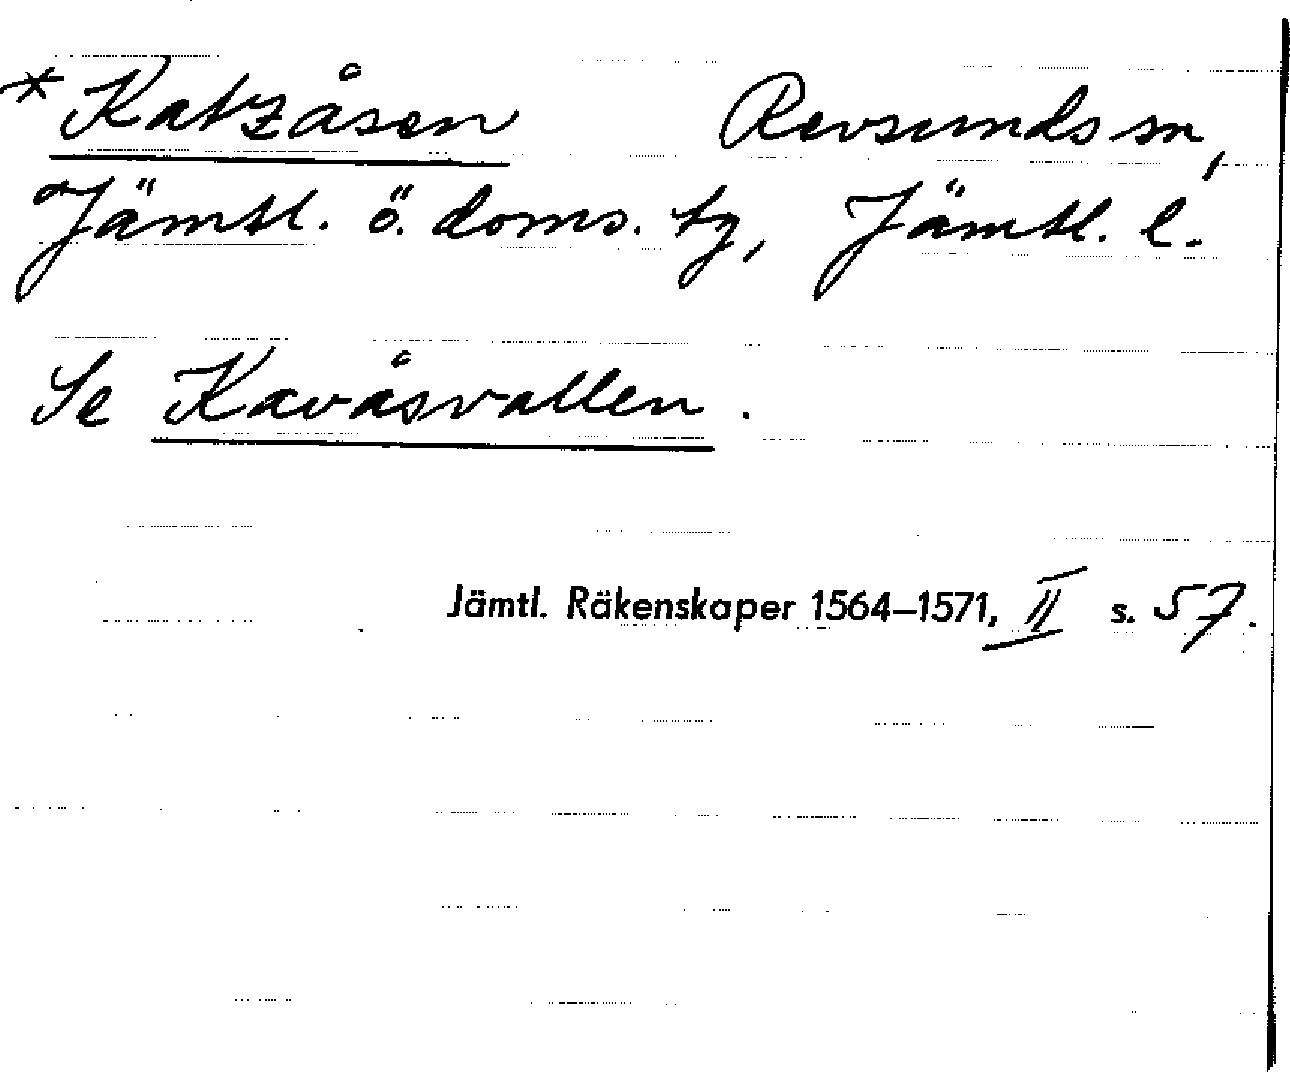 * Katzåsen Revsunds sn,
Jämtl. ö. doms. tg, Jämtl. l.
Se Kavåsvallen.
Jämtl. Räkenskaper 1564–1571, II s. 57.